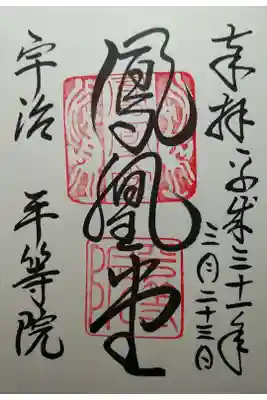 奉拝 平成三十一年
三月二十三日
鳳凰堂
宇治 平等院